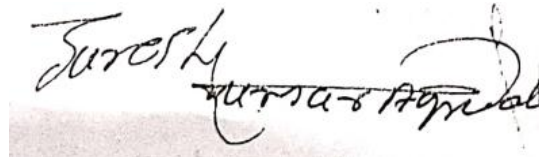 Suresh
Kumar Agrwal